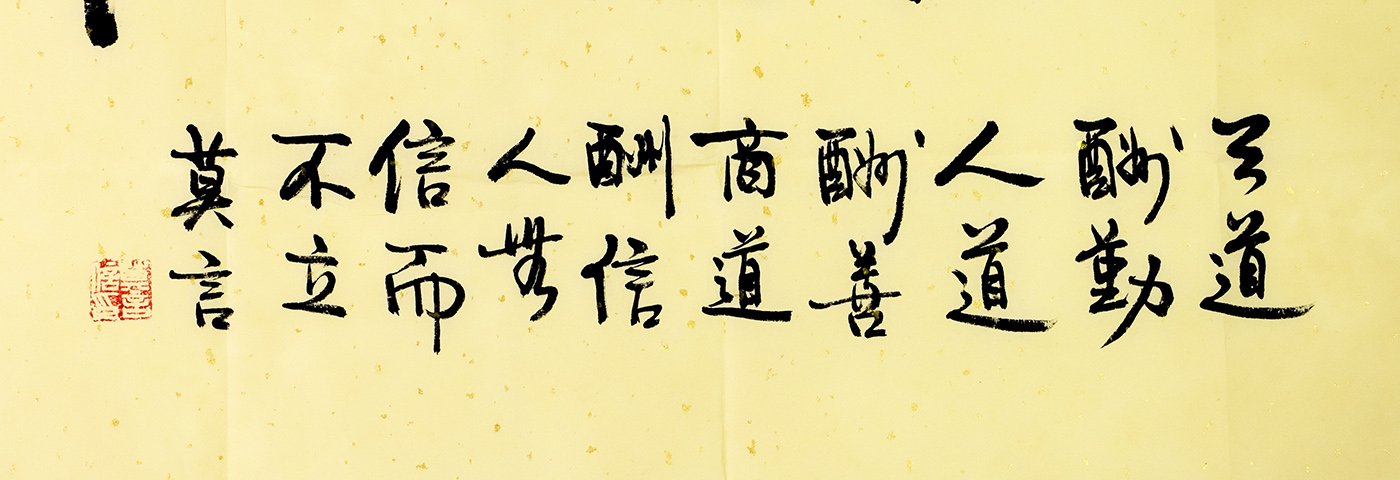 天道
酬勤
人道
酬善
商道
酬信
人無
信而
不立
莫言